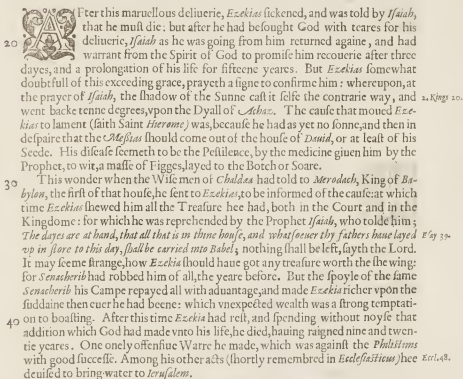 AFter this maruellous deliuerie, Ezekias sickened, and was told by Isaiah,
that he must die: but after he had besought God with teares for his
20 deliuerie, Isaiah as he was going from him returned againe, and had
warrant from the Spirit of God to promise him recouerie after three
dayes, and a prolongation of his life for fifteene yeares. But Ezekias somewhat
doubtfull of this exceeding grace, prayeth a signe to confirme him: whereupon, at
the prayer of Isaiah, the shadow of the Sunne cast it selfe the contrarie way, and 2. Kings 20.
went backe tenne degrees, vpon the Dyall of Achaz. The cause that moued Eze-
kias to lament (saith Saint Hierome) was, because he had as yet no sonne, and then in
despaire that the Messias should come out of the house of Dauid, or at least of his
Seede. His disease seemeth to be the Pestilence, by the medicine giuen him by the
Prophet, to wit, a masse of Figges, layed to the Botch or Soare.
30 This wonder when the Wise men of Chaldæa had told to Merodach, King of Ba-
bylon, the first of that house, he sent to Ezekias, to be informed of the cause: at which
time Ezekias shewed him all the Treasure hee had, both in the Court and in the
Kingdome: for which he was reprehended by the Prophet Isaiah, who tolde him;
The dayes are at hand, that all that is in thine house, and whatsoeuer thy fathers haue layed Esay 39.
vp in store to this day, shall be carried into Babel; nothing shall be left, sayth the Lord.
It may seeme strange, how Ezekia should haue got any treasure worth the shewing:
for Senacherib had robbed him of all, the yeare before. But the spoyle of the same
Senacherib his Campe repayed all with aduantage, and made Ezekia richer vpon the
suddaine then euer he had beene: which vnexpected wealth was a strong temptati-
40 on to boasting. After this time Ezekia had rest, and spending without noyse that
addition which God had made vnto his life, he died, hauing raigned nine and twen-
tie yeares. One onely offensiue Warre he made, which was against the Philistims
with good successe. Among his other acts (shortly remembred in Ecclesiasticus) hee Eccl. 48.
deuised to bring water to Ierusalem.